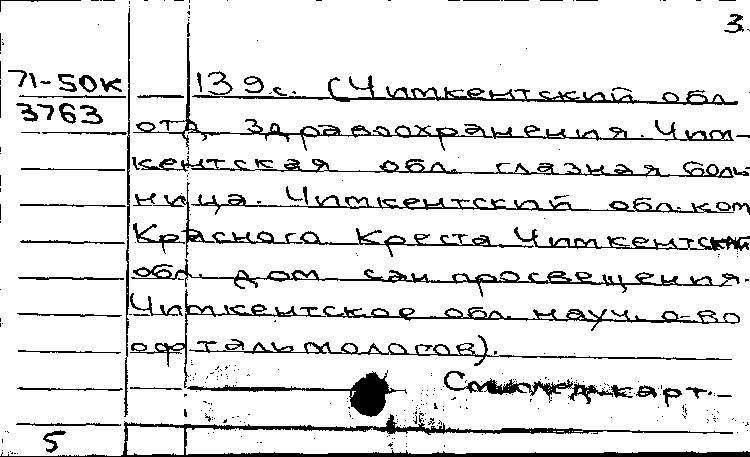 3.
71-50К 139с. (Чимкентский обл.
3763
отд. здравоохранения. Чим-
кентская обл. глазная боль
ница. Чимкентский обл. ком
Красного Креста. Чимкентский
обл. дом сан. просвещения.
Чимкентское обл. науч. о-во
офтальмологов).
След. карт.
5